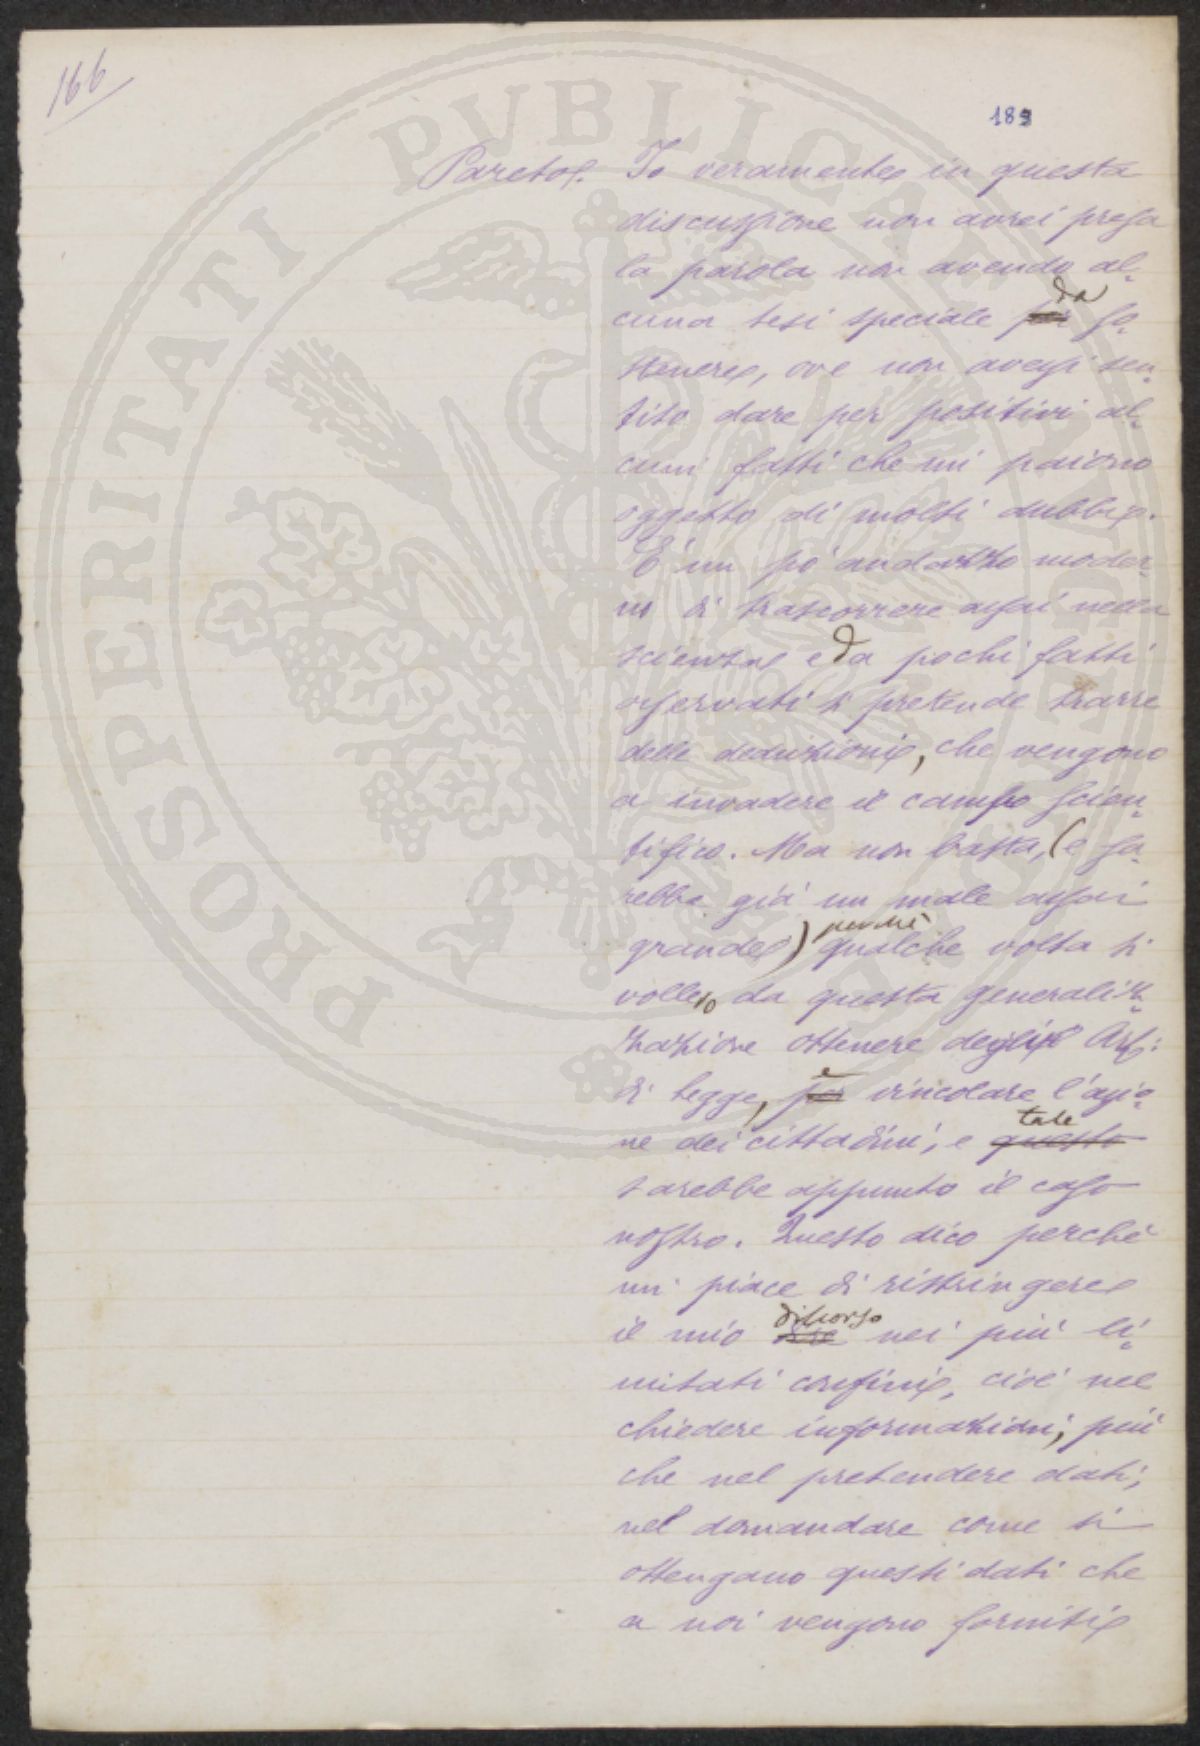 166
189
Pareto. Io veramente in questa
discussione non avrei presa
la parola non avendo al-
cuna tesi speciale per da so-
stenere, ove non avessi sen-
tito dare per positivi al-
cuni fatti che mi paiono
oggetto di molti dubbi.
E' un po' andazzo moder-
no di trascorrere assai nella
scienza e da pochi fatti
osservati si pretende trarre
delle deduzioni, che vengono
a invadere il campo scien-
tifico. Ma non basta, (e sa-
rebbe già un male assai
grande) perchè qualche volta si
volle da questa generaliz-
zazione ottenere degli Art:
di legge, per e vincolare l'azio-
ne dei cittadini, e questo tale
sarebbe appunto il caso
nostro. Questo dico perchè
mi piace di ristringere
il mio dire discorso nei più li-
mitati confini, cioè nel
chiedere informazioni; più
che nel pretendere dati;
nel domandare come si
ottengano questi dati che
a noi vengono forniti
PROSPERITATI PUBLICAE